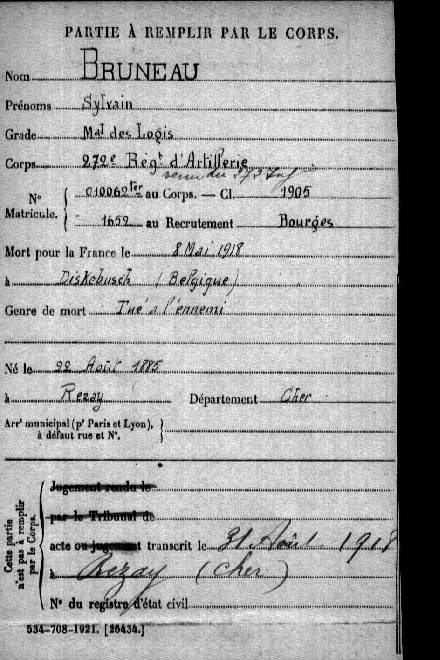 PARTIE À REMPLIR PAR LE CORPS.
Nom BRUNEAU
Prénoms Sylvain
Grade Mal des Logis
Corps 272e Régt d'Artillerie
venu du 273
N° Matricule. 010062ter au Corps. — Cl. 1905
1652 au Recrutement Bourges
Mort pour la France le 8 Mai 1918
à Diskebusch (Belgique)
Genre de mort Tué à l'ennemi
Né le 22 Août 1885
à Rezay Département Cher
Arrt municipal (pr Paris et Lyon),
à défaut rue et N°.
Cette partie n'est pas à remplir par le Corps.
Jugement rendu le
par le Tribunal de
acte ou jugement transcrit le 31 Août 1918
à Rezay (Cher)
N° du registre d'état civil
534-708-1921. [26434.]